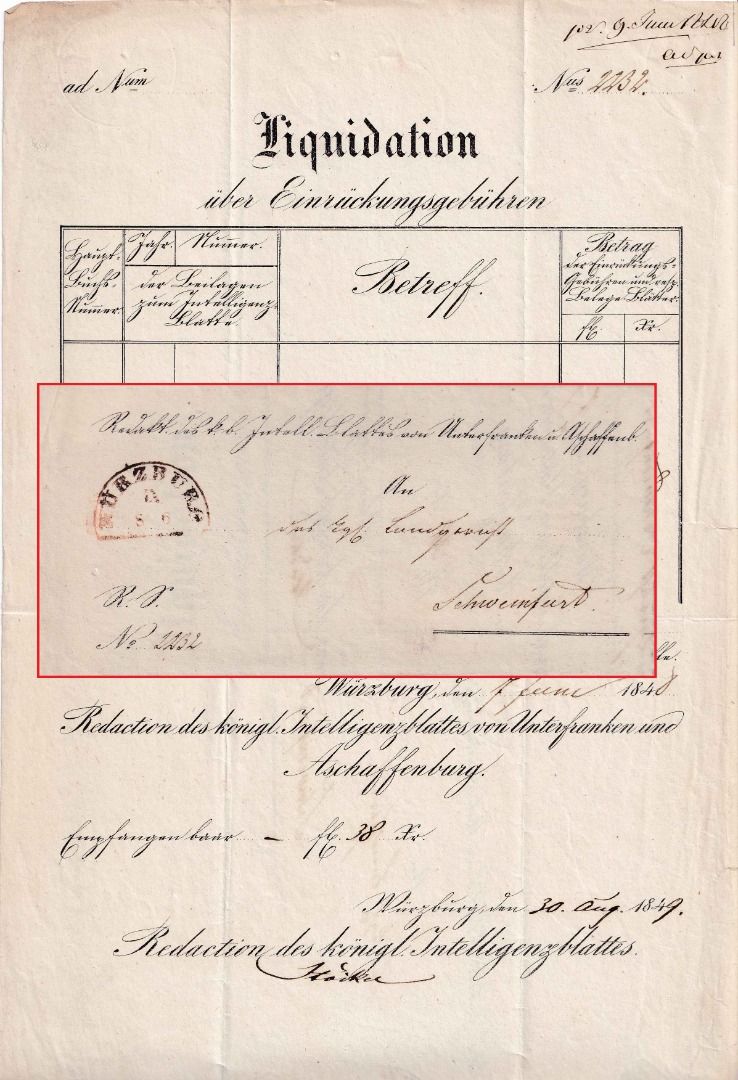 pr. 9. Juni 1848
ad Num
Nus 2232.
Liquidation
über Einrückungsgebühren
Haupt-
Buchs-
Numer.
Jahr. Numer.
der Beilagen
zum Intelligenz-
Blatte.
Betreff.
Betrag
der Einrückungs-
Gebühren und resp.
Belege-Blätter.
fl. Xr.
Redakt. des k. b. Intell. Blattes von Unterfranken u. Aschaffenb.
WÜRZBURG
8 6
An
das Kgl. Landgericht
Schweinfurt.
R. S.
No. 2232
Würzburg, den 7 Juni 1848
Redaction des königl. Intelligenzblattes von Unterfranken und
Aschaffenburg.
Empfangen baar – fl. 38 Xr.
Würzburg, den 30. Aug. 1849.
Redaction des königl. Intelligenzblattes.